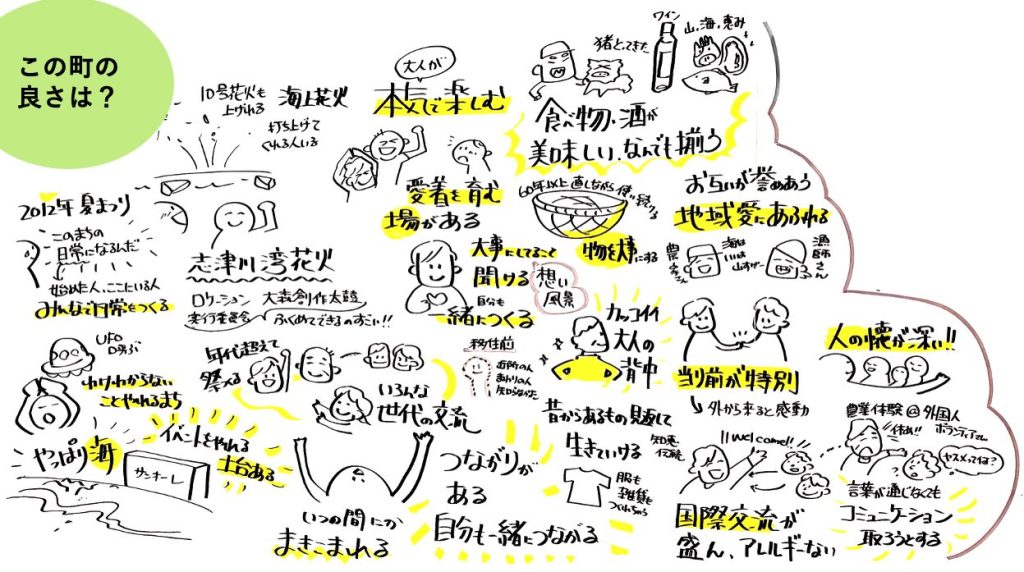 この町の
良さは？
10号花火も
上げれる
海上花火
打ち上げて
くれる人いる
大人が
本気で楽しむ
猪とってきた
ワイン
山、海、恵み
食べ物、酒が
美味しい、なんでも揃う
2012年 夏まつり
このまちの
日常になるんだ
始めた人、ここにいる人
みんなで日常をつくる
志津川湾花火
ロケーション
大森創作太鼓
実行委員会
ふくめてできるのすごい!!
愛着を育む
場がある
60年以上直しながら使い続けている
物を大事にする
お互いが誉めあう
地域愛にあふれる
農家さん
漁師さん
大事にしてること
聞ける
想い
風景
自分も
一緒につくる
UFO
呼ぶ
わけわからない
ことやれるまち
年代超えて
祭える
いろんな
世代の交流
移住前
近所の人
知らなかった
カッコイイ
大人の
背中
当り前が特別
外から来ると感動
人の懐が深い!!
やっぱり海
サンオーレ
イベントをやれる
土台ある
いつの間にか
まきこまれる
つながりが
ある
自分も一緒につながる
昔からあるもの見返して
生きていける
知恵
伝統
服も
雑貨も
つくれちゃう
welcome!!
国際交流が
盛ん、アレルギーない
農業体験@外国人
ボランティアさん
休め!!
ヤスメってなに?
言葉が通じなくても
コミュニケーション
取ろうとする